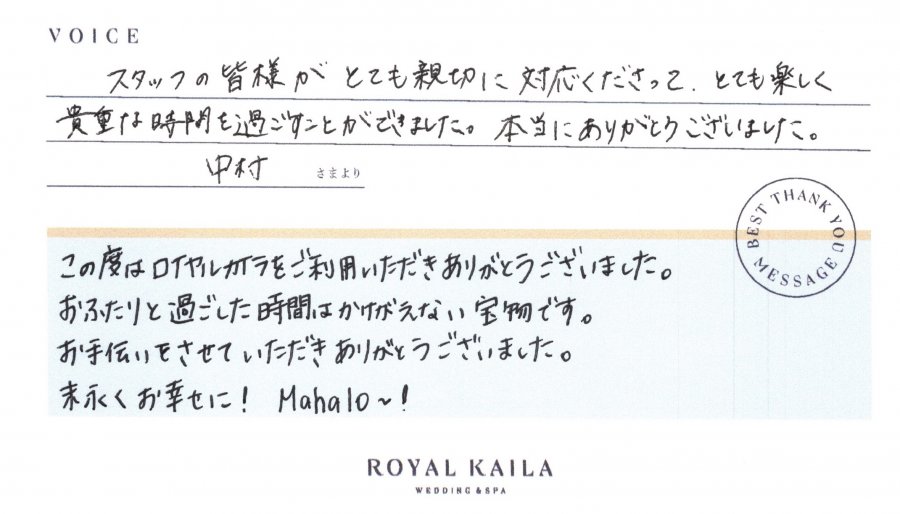 VOICE
スタッフの皆様が とても親切に 対応くださって、とても楽しく
貴重な時間を過ごすことができました。 本当にありがとうございました。
中村 さまより
BEST THANK YOU MESSAGE
この度はロイヤルカイラをご利用いただきありがとうございました。
おふたりと過ごした時間はかけがえない宝物です。
お手伝いをさせていただきありがとうございました。
末永くお幸せに! Mahalo~!
ROYAL KAILA
WEDDING & SPA